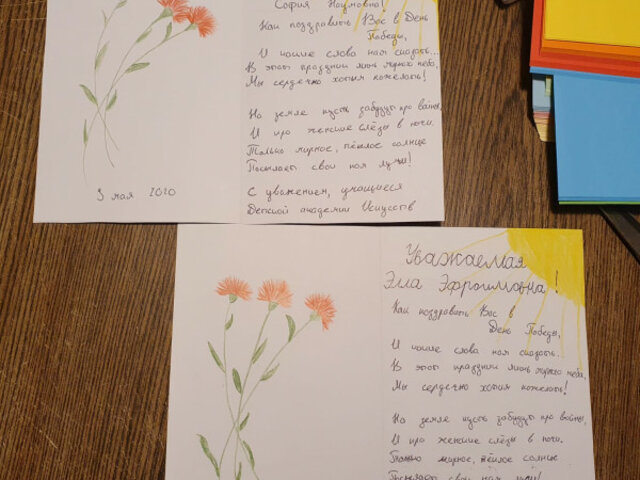 София Наумовна!
Как поздравить Вас в День
Победы,
И какие слова нам сказать...
В этот праздник лишь мирного неба,
Мы сердечно хотим пожелать!
На земле пусть забудут про войны,
И про женские слёзы в ночи.
Только мирное, тёплое солнце
Посылает свои нам лучи!
С уважением, учащиеся
Детской академии Искусств
9 мая 2020
Уважаемая
Элла Эфроимовна!
Как поздравить Вас в
День Победы,
И какие слова нам сказать...
В этот праздник лишь мирного неба,
Мы сердечно хотим пожелать!
На земле пусть забудут про войны,
И про женские слёзы в ночи.
Только мирное, тёплое солнце
Посылает свои нам лучи!